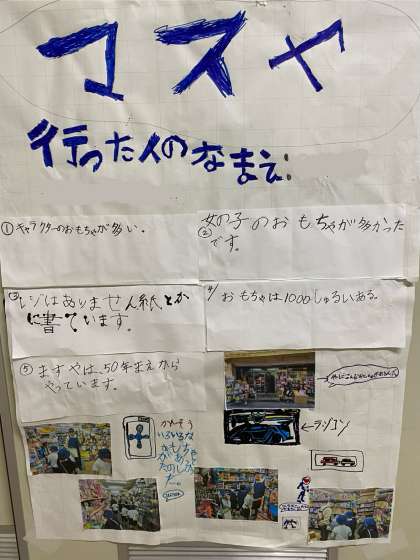 マスヤ
行った人のなまえ:
①キャラクターのおもちゃが多い。
女の子のおもちゃが多かった
②です。
③レジはありません紙とか
に書ています。
④おもちゃは1000しゅるいある。
⑤ますやは、50年まえから
やっています。
いろいろな
おもちゃ
があって
たのしかっ
た。
←ラジコン